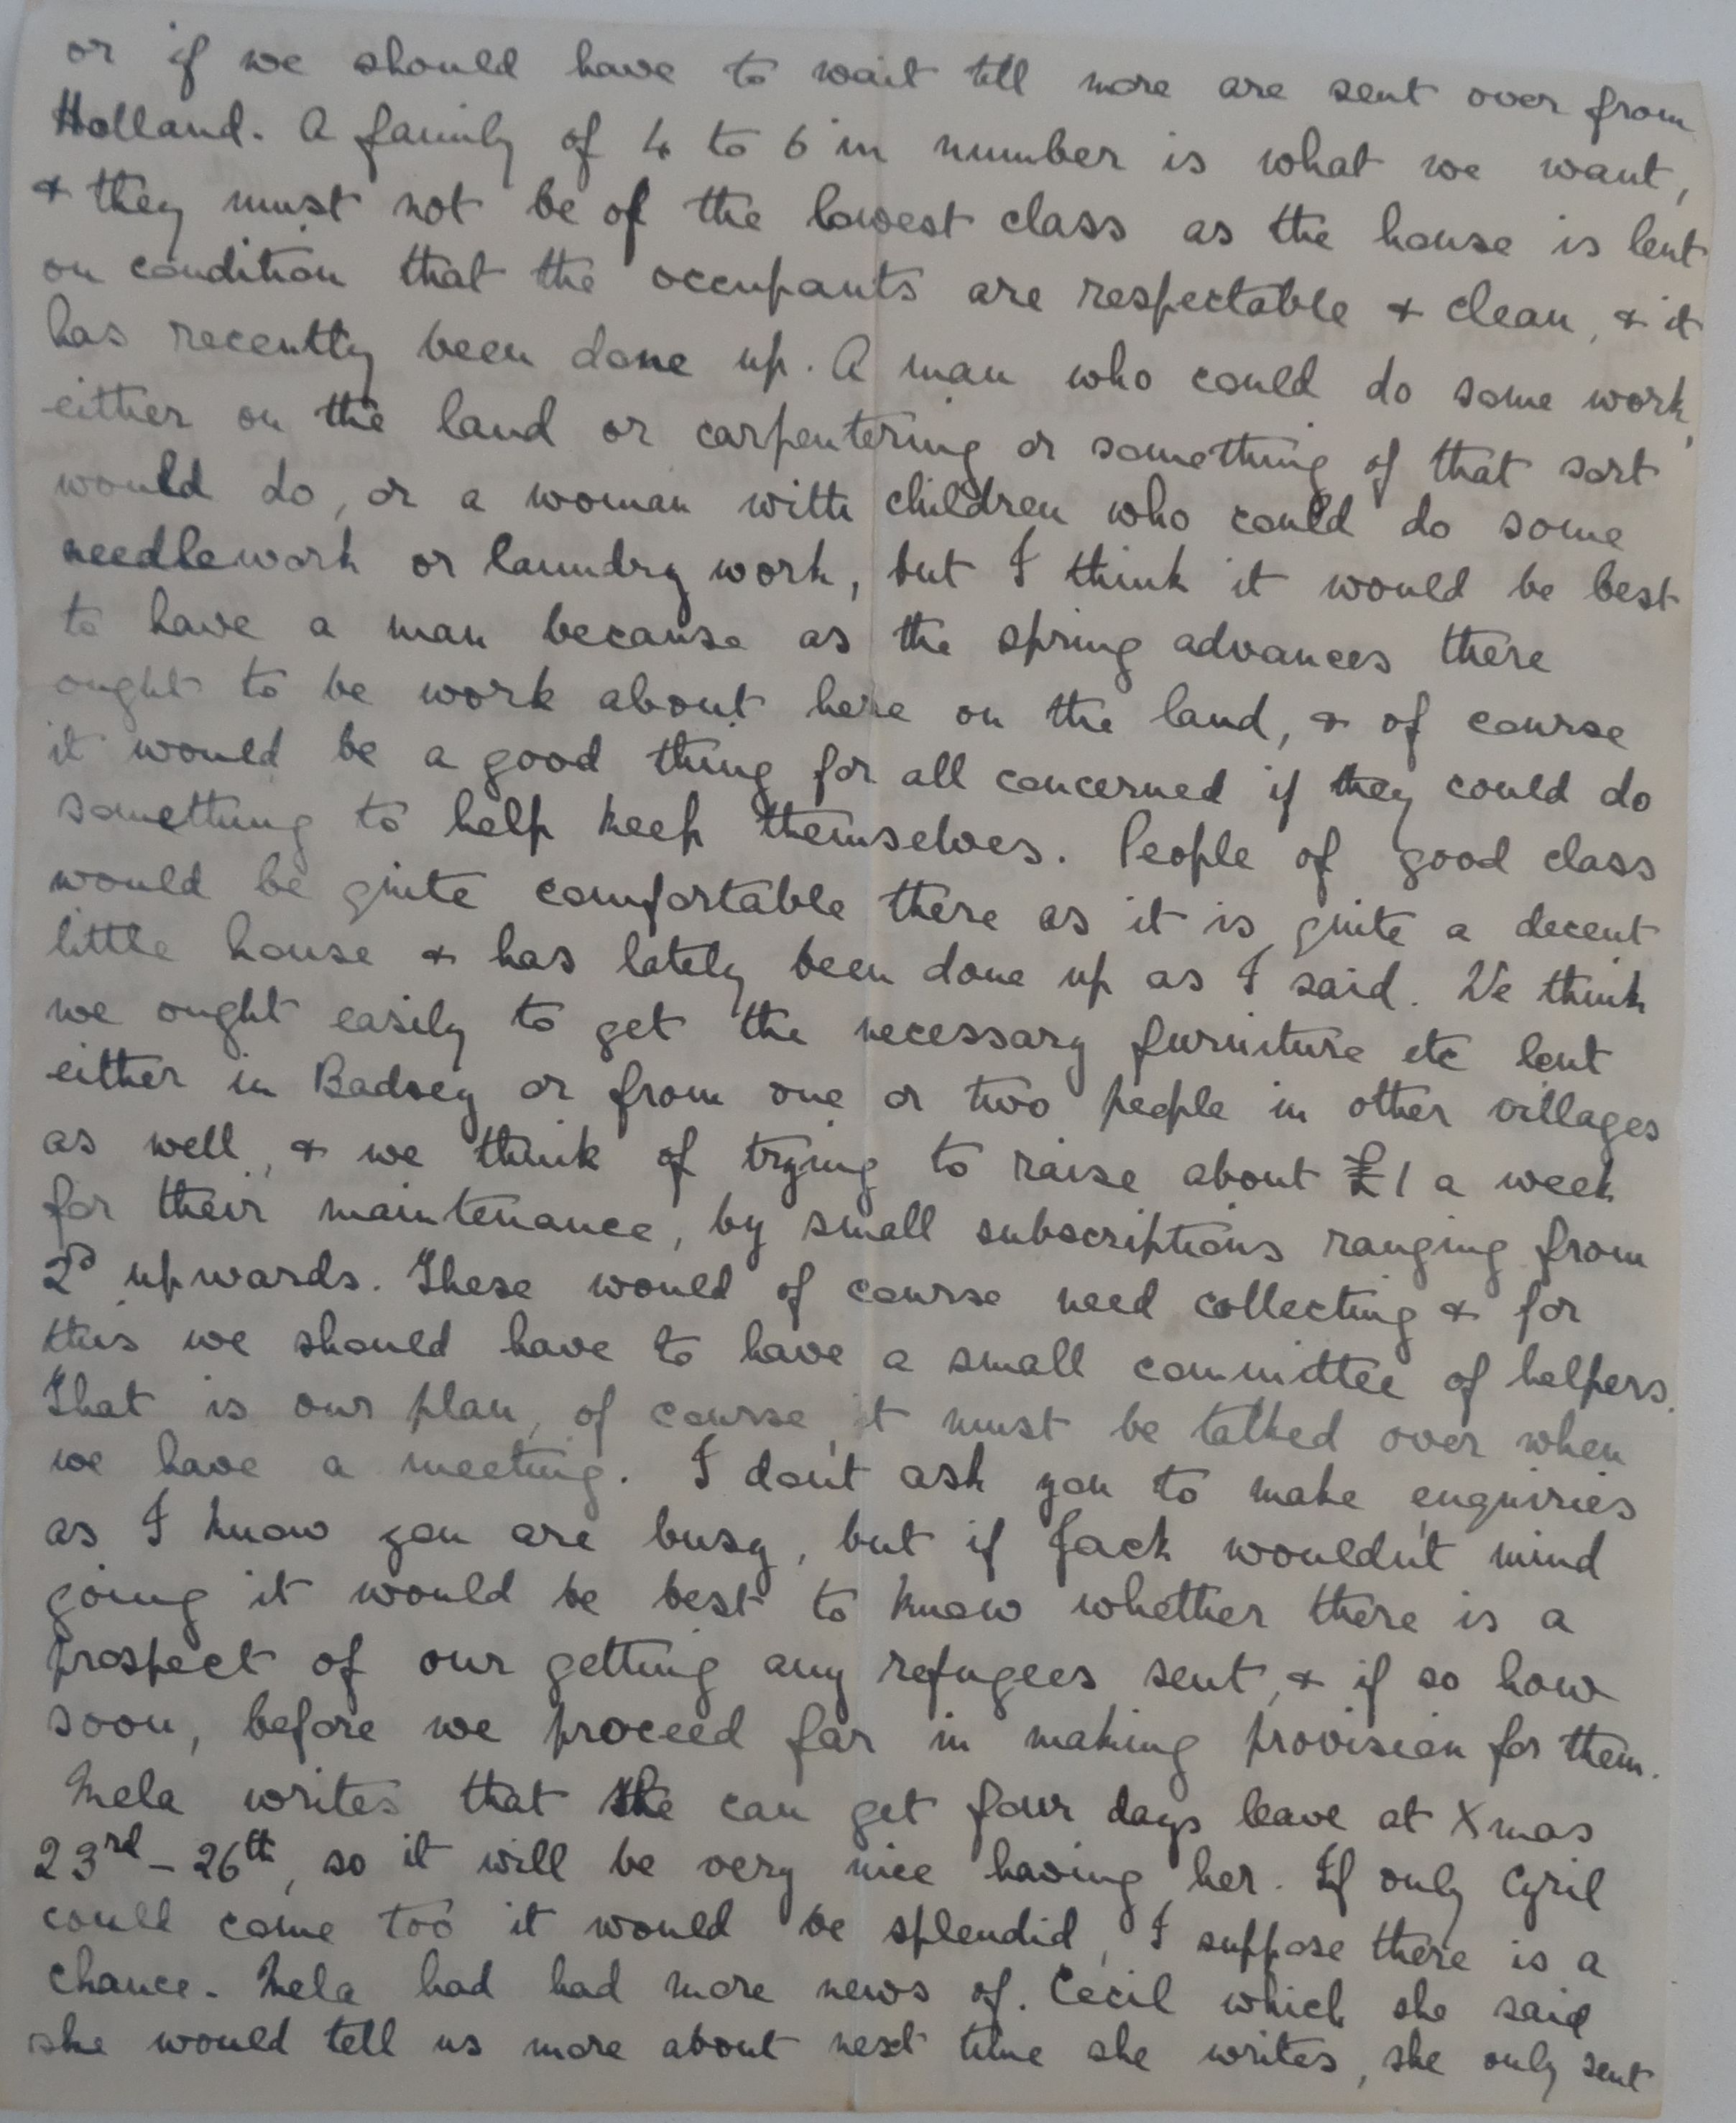 or if we should have to wait till more are sent over from
Holland. A family of 4 to 6 in number is what we want,
& they must not be of the lowest class as the house is lent
on condition that the occupants are respectable & clean, & it
has recently been done up. A man who could do some work,
either on the land or carpentering or something of that sort
would do, or a woman with children who could do some
needlework or laundry work, but I think it would be best
to have a man because as the spring advances there
ought to be work about here on the land, & of course
it would be a good thing for all concerned if they could do
something to help keep themselves. People of good class
would be quite comfortable there as it is quite a decent
little house & has lately been done up as I said. We think
we ought easily to get the necessary furniture etc lent
either in Badsey or from one or two people in other villages
as well, & we think of trying to raise about £1 a week
for their maintenance, by small subscriptions ranging from
2d upwards. These would of course need collecting & for
this we should have to have a small committee of helpers.
That is our plan, of course it must be talked over when
we have a meeting. I don't ask you to make enquiries
as I know you are busy, but if Jack wouldn't mind
going it would be best to know whether there is a
prospect of our getting any refugees sent, & if so how
soon, before we proceed far in making provision for them.
Mela writes that she can get four days leave at Xmas
23rd – 26th, so it will be very nice having her. If only Cyril
could come too it would be splendid, I suppose there is a
chance. Mela had had more news of. Cecil which she said
she would tell us more about next time she writes, she only sent